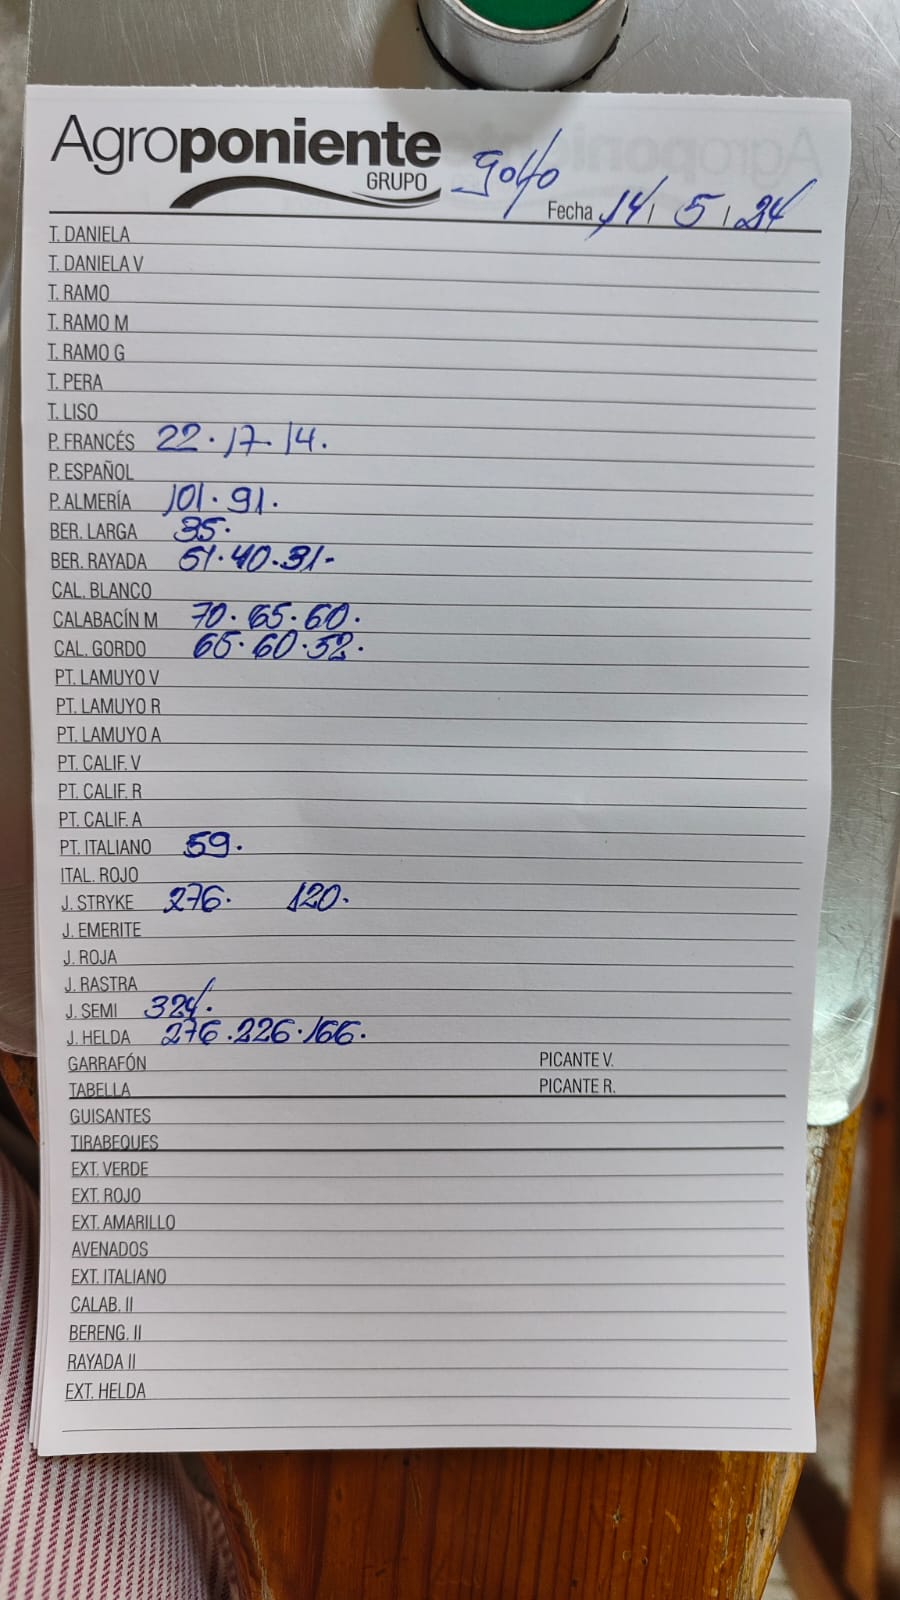 Agroponiente
GRUPO
golfo
Fecha 14 / 5 / 24
T. DANIELA
T. DANIELA V
T. RAMO
T. RAMO M
T. RAMO G
T. PERA
T. LISO
P. FRANCÉS 22 · 17 · 14 ·
P. ESPAÑOL
P. ALMERÍA 101 · 91 ·
BER. LARGA 35 ·
BER. RAYADA 51 · 40 · 31 -
CAL. BLANCO
CALABACÍN M 70 · 65 · 60 ·
CAL. GORDO 65 · 60 · 52 ·
PT. LAMUYO V
PT. LAMUYO R
PT. LAMUYO A
PT. CALIF. V
PT. CALIF. R
PT. CALIF. A
PT. ITALIANO 59 ·
ITAL. ROJO
J. STRYKE 276 · 120 ·
J. EMERITE
J. ROJA
J. RASTRA
J. SEMI 324 ·
J. HELDA 276 · 226 · 166 ·
GARRAFÓN PICANTE V.
TABELLA PICANTE R.
GUISANTES
TIRABEQUES
EXT. VERDE
EXT. ROJO
EXT. AMARILLO
AVENADOS
EXT. ITALIANO
CALAB. II
BERENG. II
RAYADA II
EXT. HELDA